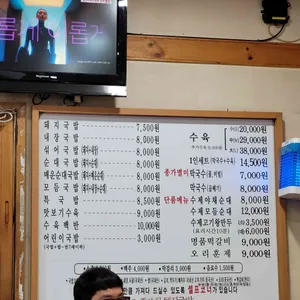 돼지국밥 7,500원
내장국밥 8,000원
섞어국밥 8,000원
순대국밥 8,000원
매운순대국밥 9,000원
모듬국밥 9,000원
특국밥 8,500원
맛보기수육 9,000원
수육백반 10,000원
어린이국밥 3,000원
수육
20,000원
29,000원
38,000원
1인세트(막국수+수육) 14,500원
막국수 7,000원
막국수(곱빼기) 8,000원
단품메뉴 수제야채순대 8,000원
수제모듬순대 12,000원
수제고기왕만두 3,500원
명품떡갈비 9,000원
오리훈제 9,000원
맥주 4,000원
막걸리 3,000원
음료수 1,500원
가져다 드실수 있도록 셀프코너가 있습니다